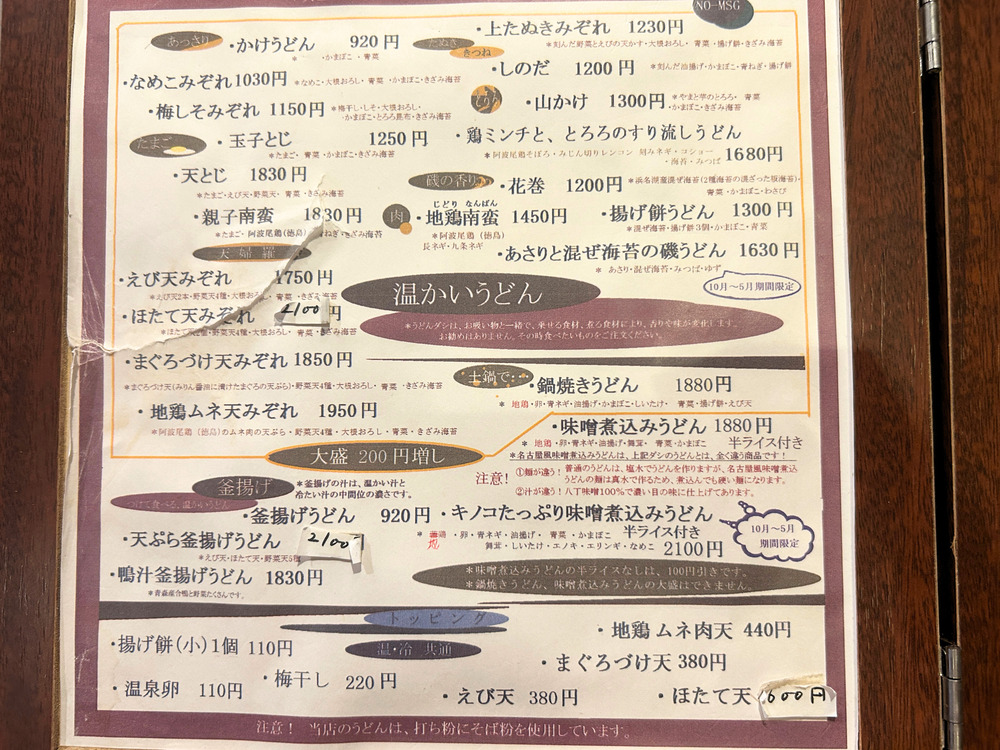 NO-MSG
あっさり
・かけうどん 920円
＊・かまぼこ・青菜
・なめこみぞれ 1030円 ＊なめこ・大根おろし・青菜・かまぼこ・きざみ海苔
・梅しそみぞれ 1150円 ＊梅干し・しそ・大根おろし・
・かまぼこ・とろろ昆布・きざみ海苔
たまご
・玉子とじ 1250円
＊たまご・青菜・かまぼこ・きざみ海苔
・天とじ 1830円
＊たまご・えび天・野菜天・青菜・きざみ海苔
・親子南蛮 1830円
＊たまご・阿波尾鶏（徳島）・青ねぎ・きざみ海苔
天婦羅
・えび天みぞれ 1750円
＊えび天2本・野菜天4種・大根おろし・青菜・きざみ海苔
・ほたて天みぞれ 2100円
・野菜天4種・大根おろし・青菜・きざみ海苔
・まぐろづけ天みぞれ 1850円
＊まぐろづけ天(みりん醤油に漬けたまぐろの天ぷら)・野菜天4種・大根おろし・青菜・きざみ海苔
・地鶏ムネ天みぞれ 1950円
＊阿波尾鶏（徳島）のムネ肉の天ぷら・野菜天4種・大根おろし・青菜・きざみ海苔
たぬき
きつね
・上たぬきみぞれ 1230円
＊刻んだ野菜とえびの天かす・大根おろし・青菜・揚げ餅・きざみ海苔
・しのだ 1200円 ＊刻んだ油揚げ・かまぼこ・青ねぎ・揚げ餅
とろろ
・山かけ 1300円 ＊やまと芋のとろろ・青菜
・かまぼこ・きざみ海苔
・鶏ミンチと、とろろのすり流しうどん
＊阿波尾鶏そぼろ・みじん切りレンコン 刻みネギ・コショー
・海苔・みつば 1680円
磯の香り
・花巻 1200円 ＊浜名湖産混ぜ海苔(2種海苔の混ざった板海苔)・
青菜・かまぼこ・わさび
肉
じどり なんばん
・地鶏南蛮 1450円
＊阿波尾鶏（徳島）
長ネギ・九条ネギ
・揚げ餅うどん 1300円
＊混ぜ海苔・揚げ餅3個・かまぼこ・青菜
・あさりと混ぜ海苔の磯うどん 1630円
＊あさり・混ぜ海苔・みつば・ゆず
10月～5月期間限定
温かいうどん
＊うどんダシは、お吸い物と一緒で、乗せる食材、煮る食材により、香りや味が変化します。
お勧めはありません。その時食べたいものをご注文ください。
土鍋で…
・鍋焼きうどん 1880円
＊地鶏・卵・青ネギ・油揚げ・かまぼこ・しいたけ・青菜・揚げ餅・えび天
・味噌煮込みうどん 1880円
＊地鶏・卵・青ネギ・油揚げ・舞茸・青菜・かまぼこ 半ライス付き
＊名古屋風味噌煮込みうどんは、上記ダシのうどんとは、全く違う商品です！
注意！ ①麺が違う！ 普通のうどんは、塩水でうどんを作りますが、名古屋風味噌煮込
うどんの麺は真水で作るため、煮込んでも硬い麺になります。
②汁が違う！ 八丁味噌100％で濃い目の味に仕上げてあります。
大盛 200円増し
釜揚げ
＊釜揚げの汁は、温かい汁と
冷たい汁の中間位の濃さです。
つけて食べる、温かいうどん
・釜揚げうどん 920円
・天ぷら釜揚げうどん 2100円
＊えび天・ほたて天・野菜天5種
・鴨汁釜揚げうどん 1830円
＊青森産合鴨と野菜たくさんです。
・キノコたっぷり味噌煮込みうどん
・卵・青ネギ・油揚げ・青菜・かまぼこ 半ライス付き
舞茸・しいたけ・エノキ・エリンギ・なめこ 2100円
10月～5月
期間限定
＊味噌煮込みうどんの半ライスなしは、100円引きです。
＊鍋焼きうどん、味噌煮込みうどんの大盛はできません。
トッピング
温・冷 共通
・揚げ餅(小)1個 110円
・温泉卵 110円
・梅干し 220円
・地鶏 ムネ肉天 440円
・まぐろづけ天 380円
・えび天 380円
・ほたて天 600円
注意！ 当店のうどんは、打ち粉にそば粉を使用しています。